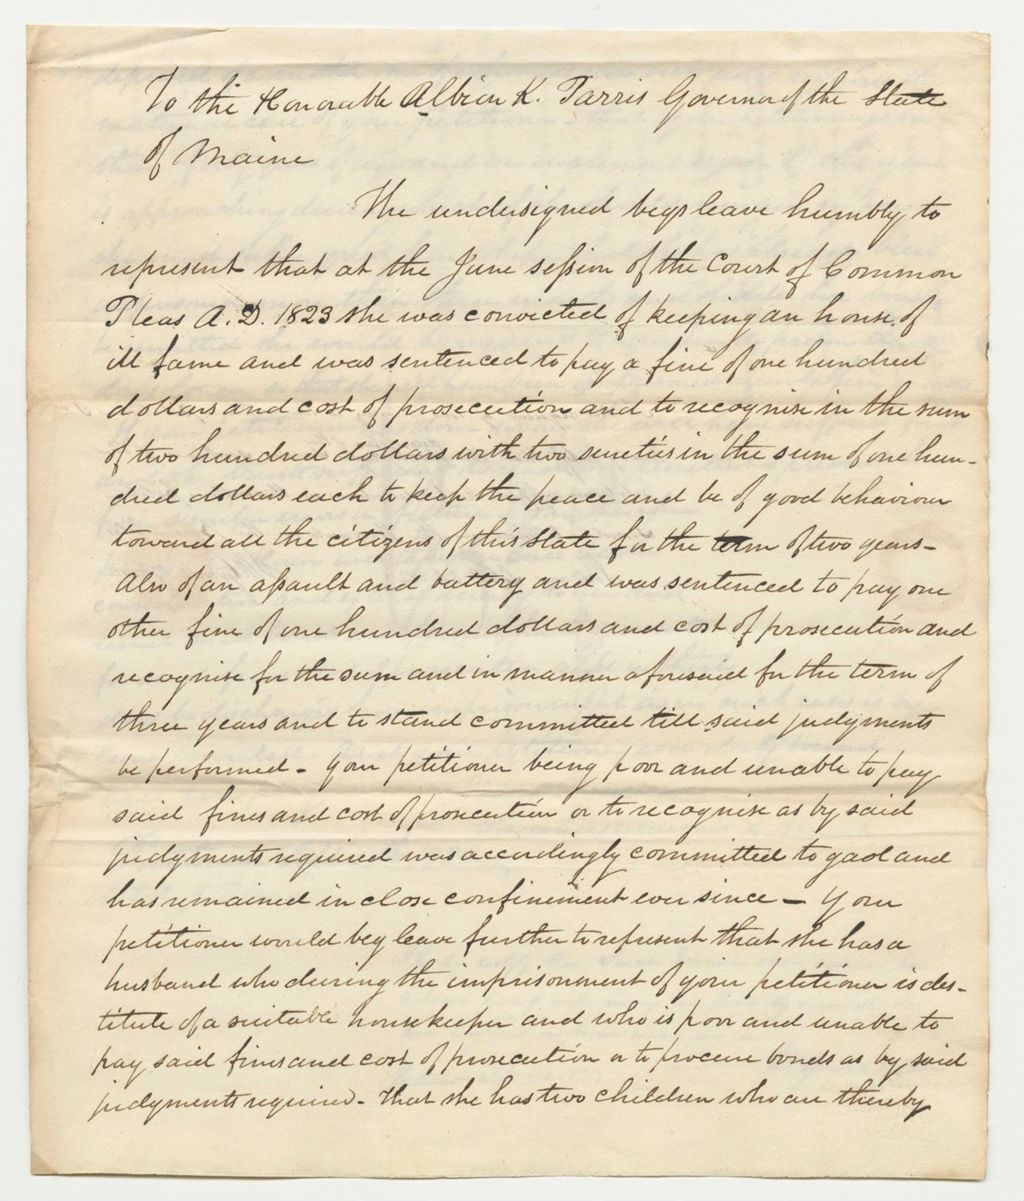 To the Honorable Albion K. Parris Governor of the State
of Maine
The undersigned begs leave humbly to
represent that at the June session of the Court of Common
Pleas A.D. 1823 she was convicted of keeping an house of
ill fame and was sentenced to pay a fine of one hundred
dollars and cost of prosecution and to recognise in the sum
of two hundred dollars with two sureties in the sum of one hun-
dred dollars each to keep the peace and be of good behaviour
toward all the citizens of this State for the term of two years-
Also of an assault and battery and was sentenced to pay one
other fine of one hundred dollars and cost of prosecution and
recognise for the sum and in manner aforesaid for the term of
three years and to stand committed till said judgments
be performed - Your petitioner being poor and unable to pay
said fines and cost of prosecution or to recognise as by said
judgments required was accordingly committed to gaol and
has remained in close confinement ever since - Your
petitioner would beg leave further to represent that she has a
husband who during the imprisonment of your petitioner is des-
titute of a suitable housekeeper and who is poor and unable to
pay said fines and cost of prosecution or to procure bonds as by said
judgments required - That she has two children who are thereby